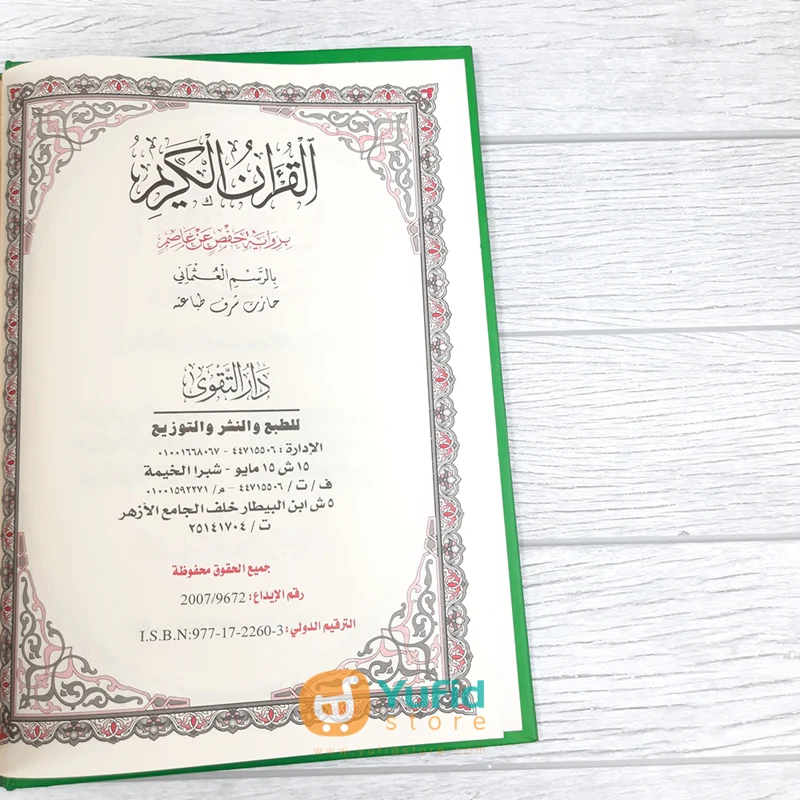 الْقُرْآنُ الْكَرِيمُ
بِرِوَايَةِ حَفْصٍ عَنْ عَاصِمٍ
بِالرَّسْمِ الْعُثْمَانِي
حازت شرف طباعته
دَارُ التَّقْوَى
للطبع والنشر والتوزيع
الإدارة : ٤٤٧١٥٥٠٦ - ٠١٠٠١٦٦٨٠٦٧
١٥ ش ١٥ مايو - شبرا الخيمة
ف / ت / ٤٤٧١٥٥٠٦ - م / ٠١٠٠١٥٩٢٢٧١
٥ ش ابن البيطار خلف الجامع الأزهر
ت / ٢٥١٤١٧٠٤
جميع الحقوق محفوظة
رقم الإيداع : 2007/9672
الترقيم الدولي : I.S.B.N:977-17-2260-3
Yufid
store
www.yufidstore.com